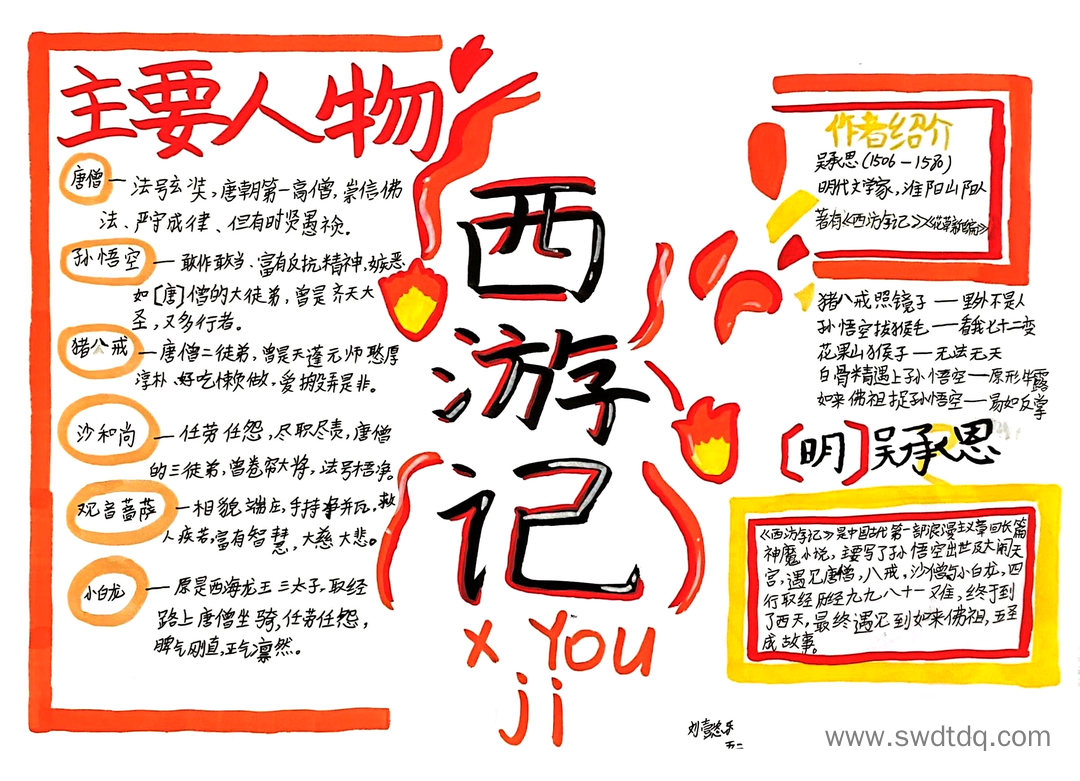 主要人物
唐僧—法号玄奘,唐朝第一高僧,崇信佛
法、严守戒律、但有时贤愚
孙悟空—敢作敢当、富有反抗精神,嫉恶
如[唐]僧的大徒弟,曾是齐天大
圣,又多行者。
猪八戒—唐僧二徒弟,曾是天蓬元师憨厚
淳朴、好吃懒做,爱搬弄是非。
沙和尚—任劳任怨,尽职尽责,唐僧
的三徒弟,曾卷帘大将,法号悟净。
观音菩萨—相貌端庄,手持净瓶,救
人疾苦,富有智慧,大慈大悲。
小白龙—原是西海龙王三太子,取经
路上唐僧坐骑,任劳任怨,
脾气刚直,正气凛然。
西
游
记
x You
ji
作者绍介
吴承思(1506—1580)
明代文学家,淮阳山阳
著有《西游记》
猪八戒照镜子—里外不是人
孙悟空拔猴毛—看我七十二变
花果山猴子—无法无天
白骨精遇上孙悟空—原形毕露
如来佛祖捉孙悟空—易如反掌
[明]吴承思
《西游记》是中国古代第一部浪漫主义章回长篇
神魔小说,主要写了孙悟空出世及大闹天
宫,遇见唐僧,八戒,沙僧与小白龙,四
行取经历经九九八十一难,终于到
了西天,最终遇见到如来佛祖,五圣
成故事。
五二
www.swdtdq.com